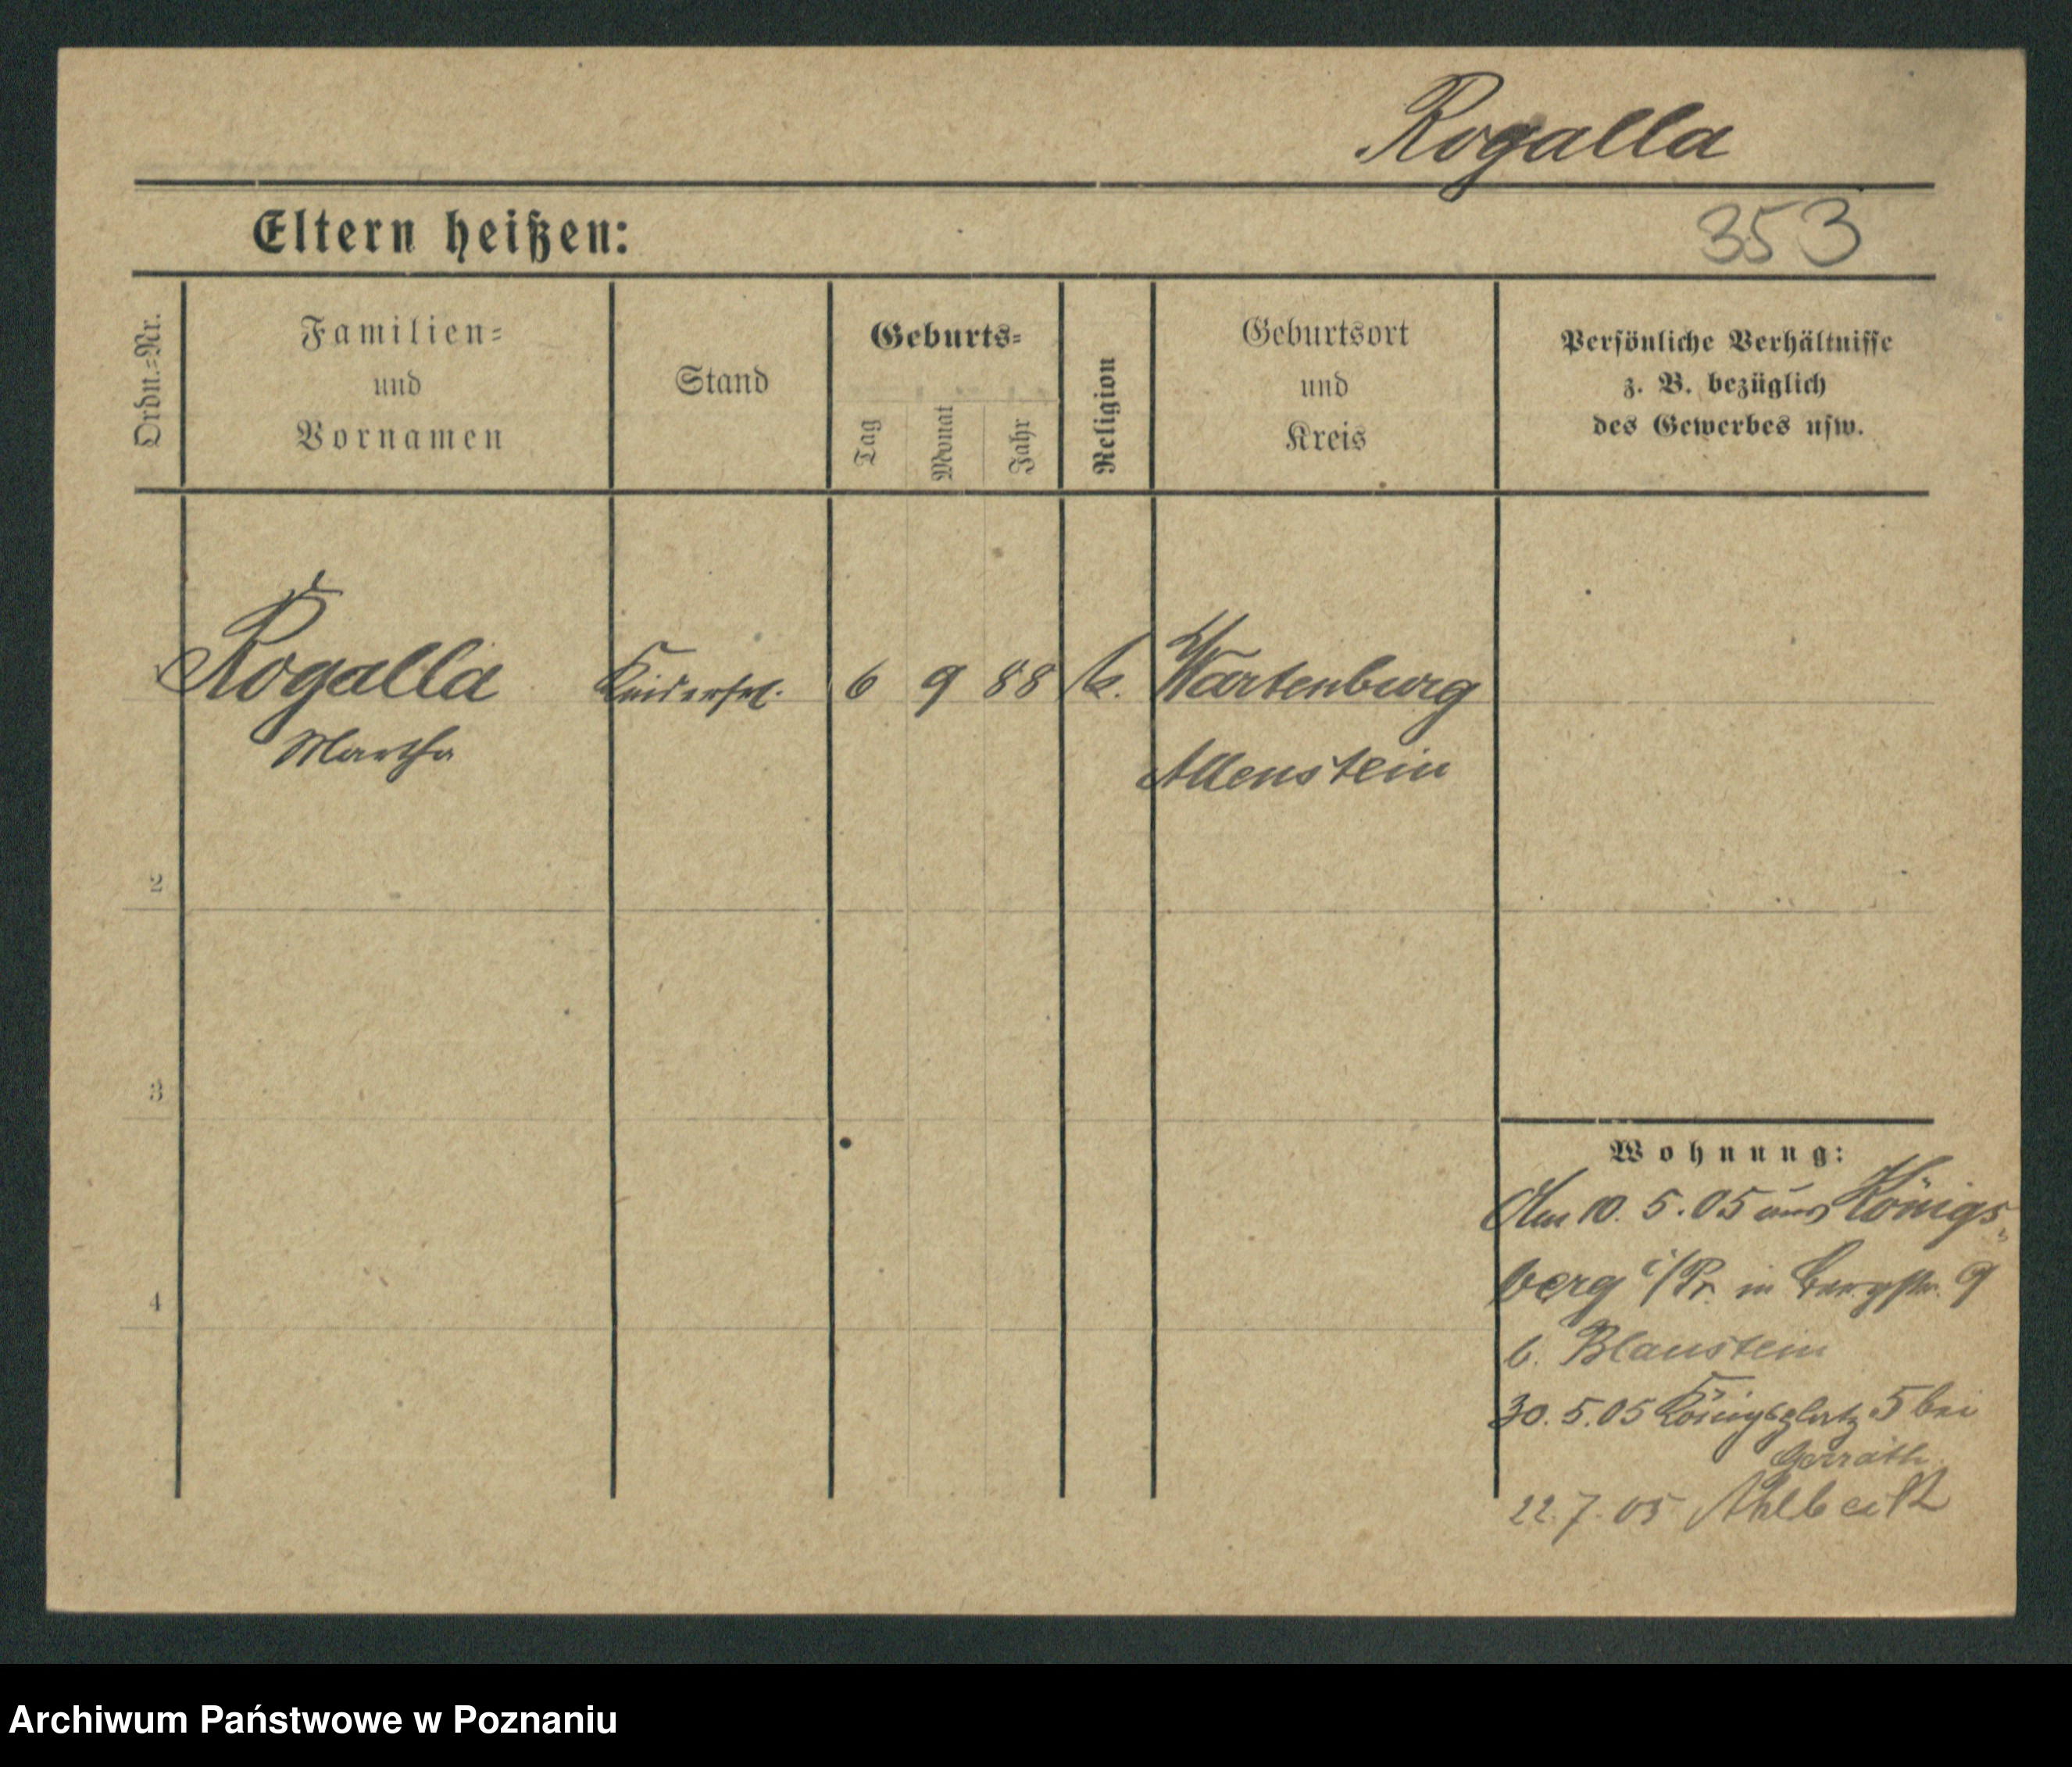 Rogalla
Eltern heißen:
353
Ordn.-Nr.
Familien-
und
Vornamen
Stand
Geburts-
Tag
Monat
Jahr
Religion
Geburtsort
und
Kreis
Persönliche Verhältnisse
z. B. bezüglich
des Gewerbes usw.
Rogalla Kinderfrl. 6 9 88 k. Wartenburg
Martha
Allenstein
2
3
4
Wohnung:
Am 10. 5. 05 aus Königs-
berg i/Pr. in Bergstr. 9
b. Blaustein
30. 5. 05 Königsplatz 5 bei
22. 7. 05 Ahlbeck
Archiwum Państwowe w Poznaniu